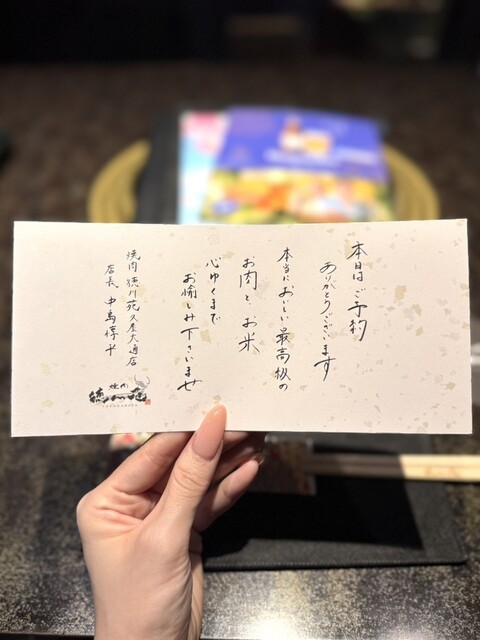 本日はご予約
ありがとうございます
本当においしい最高級の
お肉と、お米
心ゆくまで
お愉しみ下さいませ
焼肉 徳川苑久屋大通店
店長 中島惇
焼肉
徳川苑